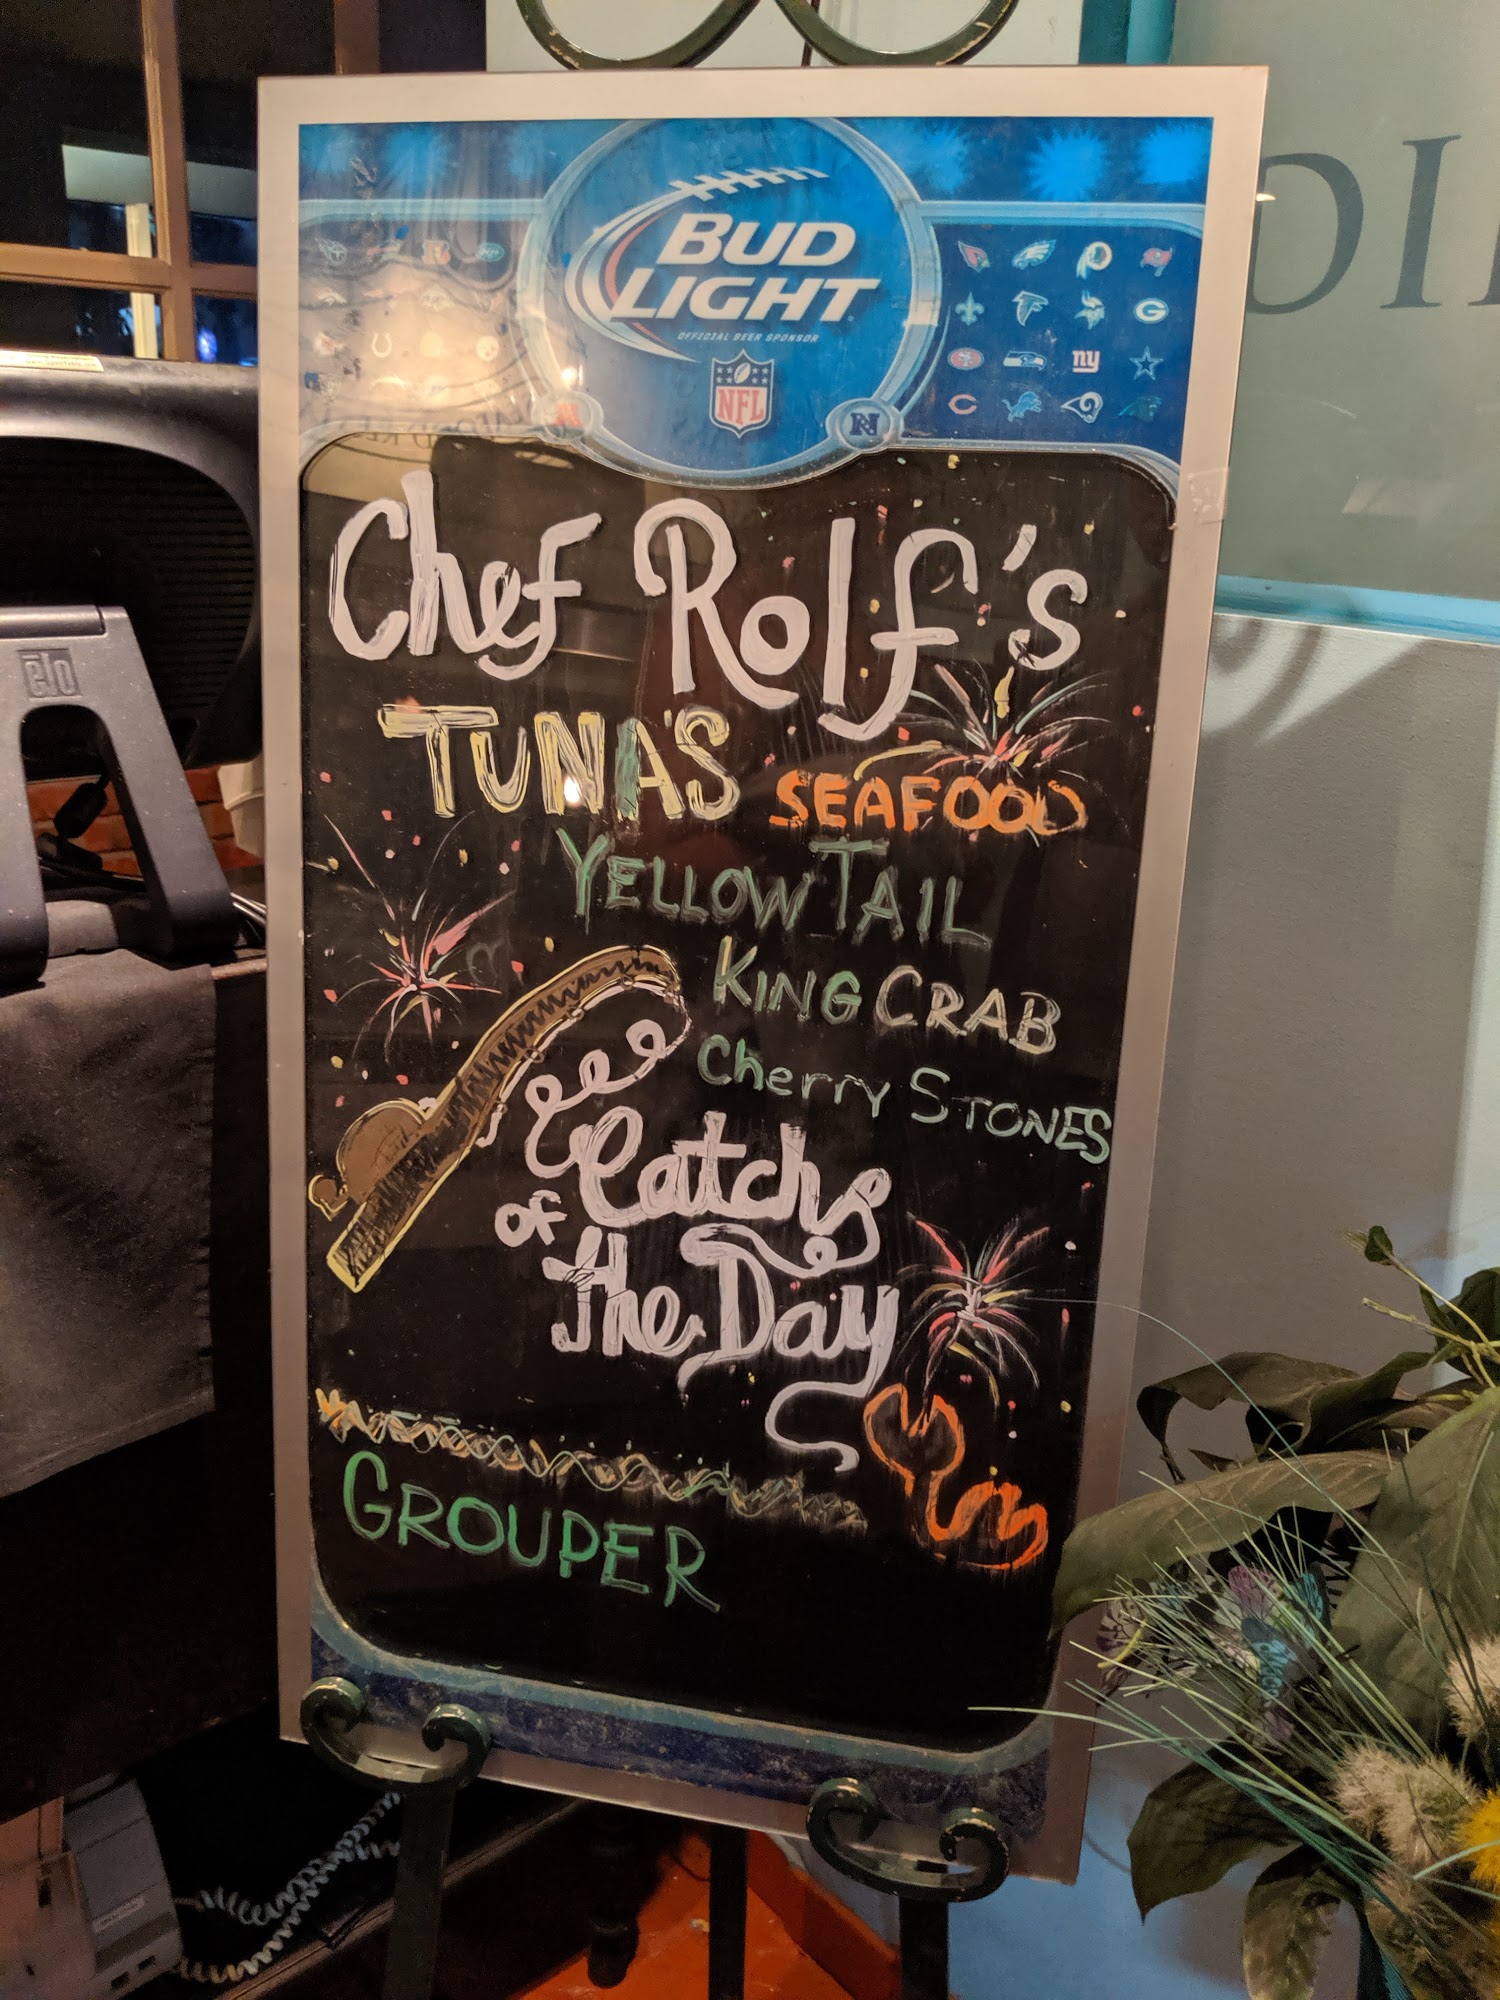 BUD
LIGHT
OFFICIAL BEER SPONSOR
NFL
ny
Chef Rolf's
TUNA'S SEAFOOD
YELLOW TAIL
KING CRAB
Cherry STONES
Catchs
of
the Day
GROUPER
elo
OI